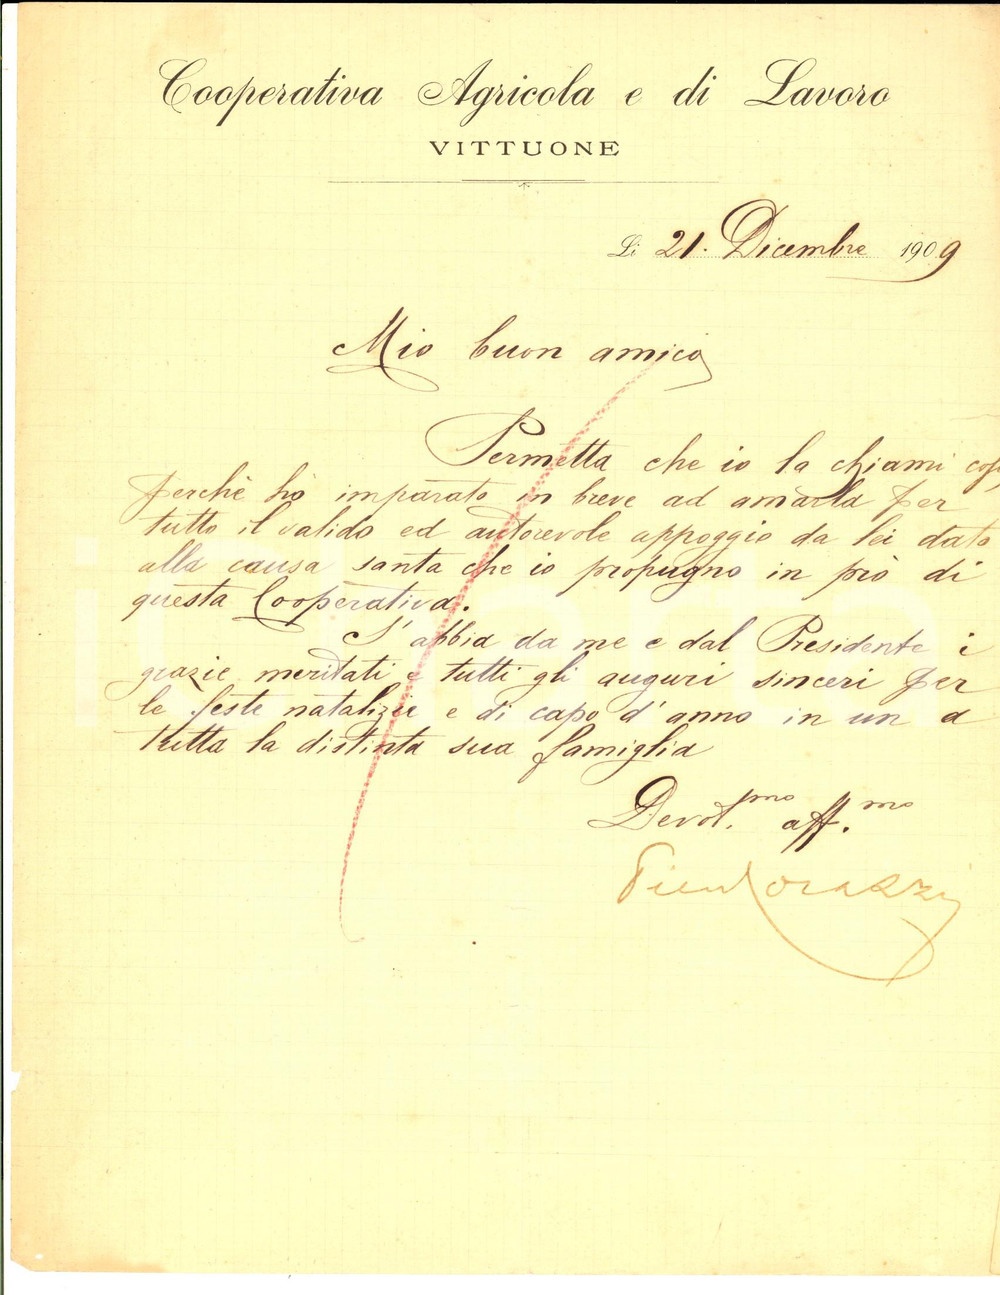 Cooperativa Agricola e di Lavoro
VITTUONE
Li 21. Dicembre 1909
Mio buon amico
Permetta che io la chiami così
perchè hò imparato in breve ad amarla per
tutto il valido ed autorevole appoggio da lei dato
alla causa santa che io propugno in prò di
questa Cooperativa.
S'abbia da me e dal Presidente i
grazie meritati e tutti gli auguri sinceri per
le feste natalizie e di capo d'anno in un a
tutta la distinta sua famiglia
Devot.mo aff.mo